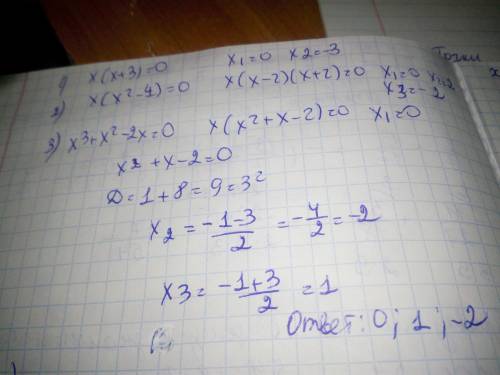 1) x(x+3)=0 x₁=0 x₂=-3
2) x(x²-4)=0 x(x-2)(x+2)=0 x₁=0 x₂=2
x3=-2
3) x³+x²-2x=0 x(x²+x-2)=0 x₁=0
x²+x-2=0
D=1+8=9=3²
x₂=(-1-3)/2=-4/2=-2
x3=(-1+3)/2=1
Ответ: 0; 1; -2
Точки
x